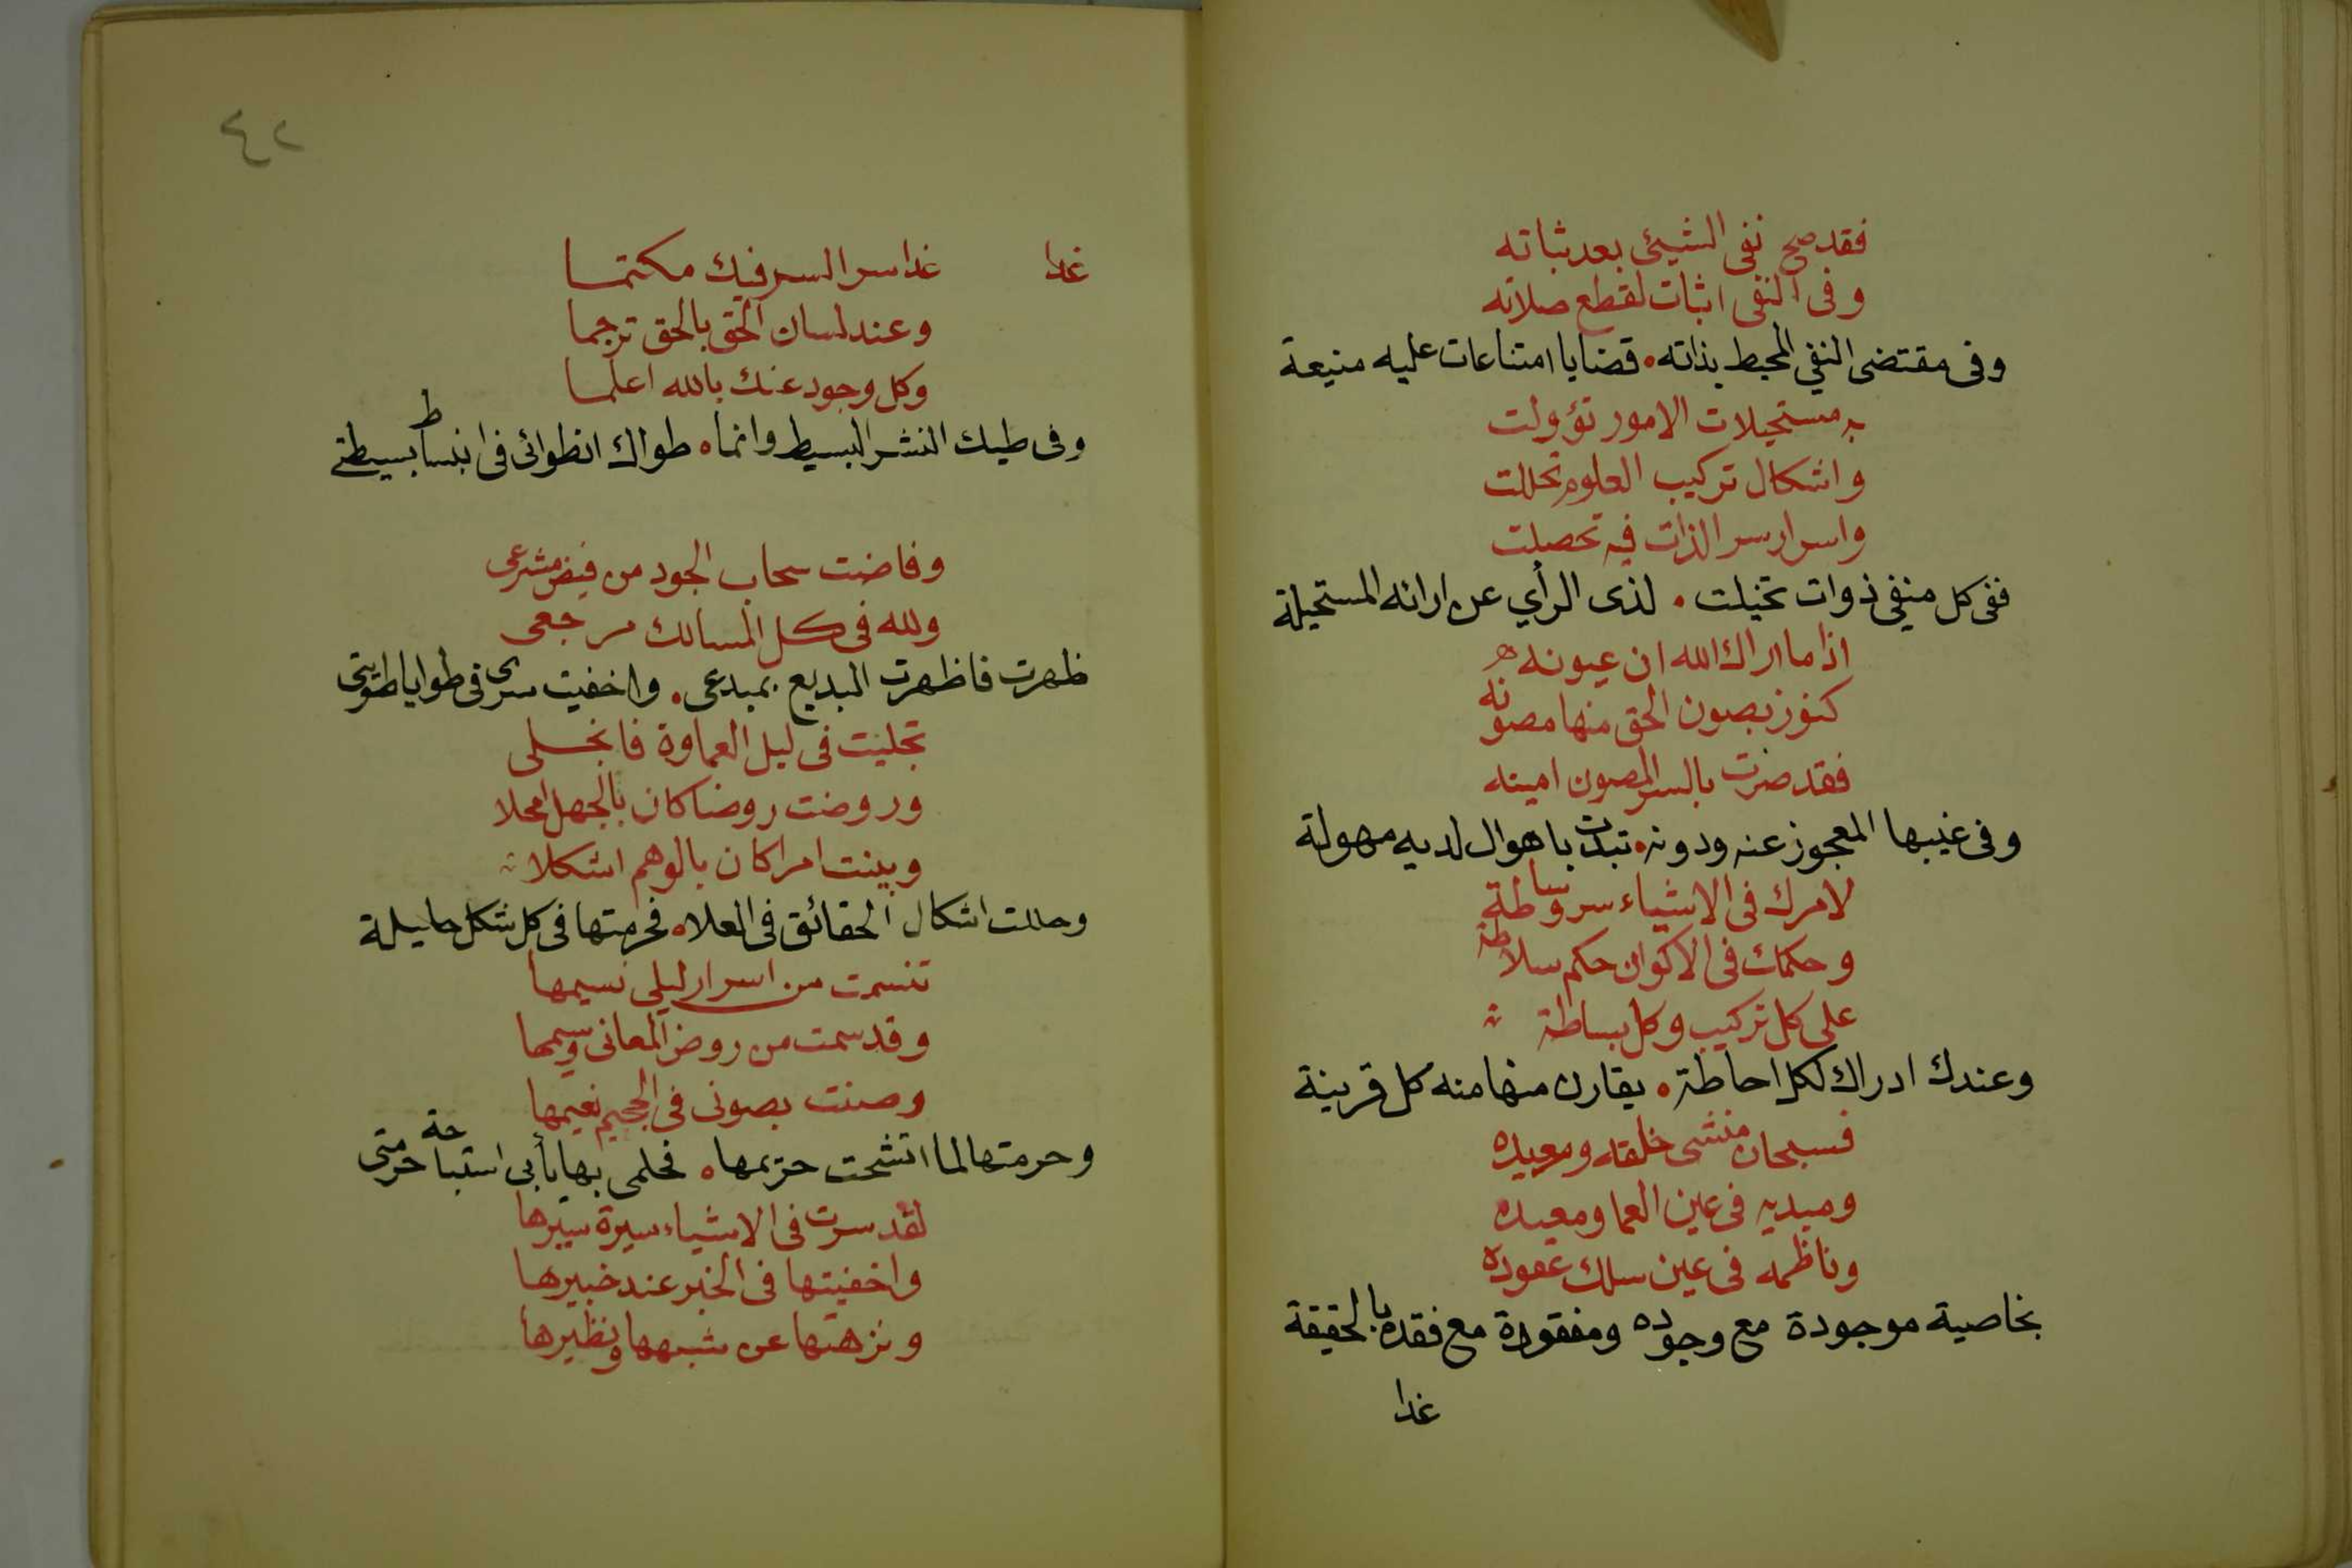 فقد صح نفى الشيئ بعد ثباته
وفى النفى اثبات لقطع صلاته
وفى مقتضى النفي المحيط بذاته • قضايا امتناعات عليه منيعة
به مستحيلات الامور تؤولت
واشكال تركيب العلوم تحللت
واسرار سر الذات فيه تحصلت
ففى كل منفي ذوات تخيلت • لذى الرأي عن ارائه المستحيلة
اذا ما اراك الله ان عيونه
كنوز بصون الحق منها مصونه
فقد صرت بالسر المصون امينه
وفى غيبها المعجوز عنه ودونه • تبدت باهوال لديه مهولة
لامرك فى الاشياء سر وساطة
وحكمك فى الاكوان حكم سلاطة
على كل تركيب وكل بساطة
وعندك ادراك لكل احاطة • يقارن منها منه كل قرينة
فسبحان منشى خلقه ومعيده
ومبديه فى عين العما ومعيده
وناظمه فى عين سلك عقوده
بخاصية موجودة مع وجوده ومفقودة مع فقده بالحقيقة
غدا
٤٢
غدا غدا سر السر فيك مكتمـا
وعند لسان الحق بالحق ترجما
وكل وجود عنك بالله اعلمـا
وفى طيك النشر البسيط وانما • طواك انطوائى فى انبساط بسيطتى
وفاضت سحاب الجود من فيض مشرعى
ولله فى كل المسالك مرجعى
ظهرت فاظهرت البديع بمبدعى • واخفيت سرى فى طوايا طويتى
تجليت فى ليل العماوة فانجـلى
وروضت روضا كان بالجهل امحلا
وبينت امرا كان بالوهم اشكلا
وحللت اشكال الحقائق فى العلا • فحرمتها فى كل شكل حليلة
تنسمت من اسرار ليلى نسيمها
وقد سمت من روض المعانى وسيمها
وصنت بصونى فى الجحيم نعيمها
وحرمتها لما اتشحت حريمها • فحلمى بها يأبى استباحة حرمتى
لقد سرت فى الاشياء سيرة سيرها
واخفيتها فى الخبر عند خبيرها
ونزهتها عن شبهها ونظيرها